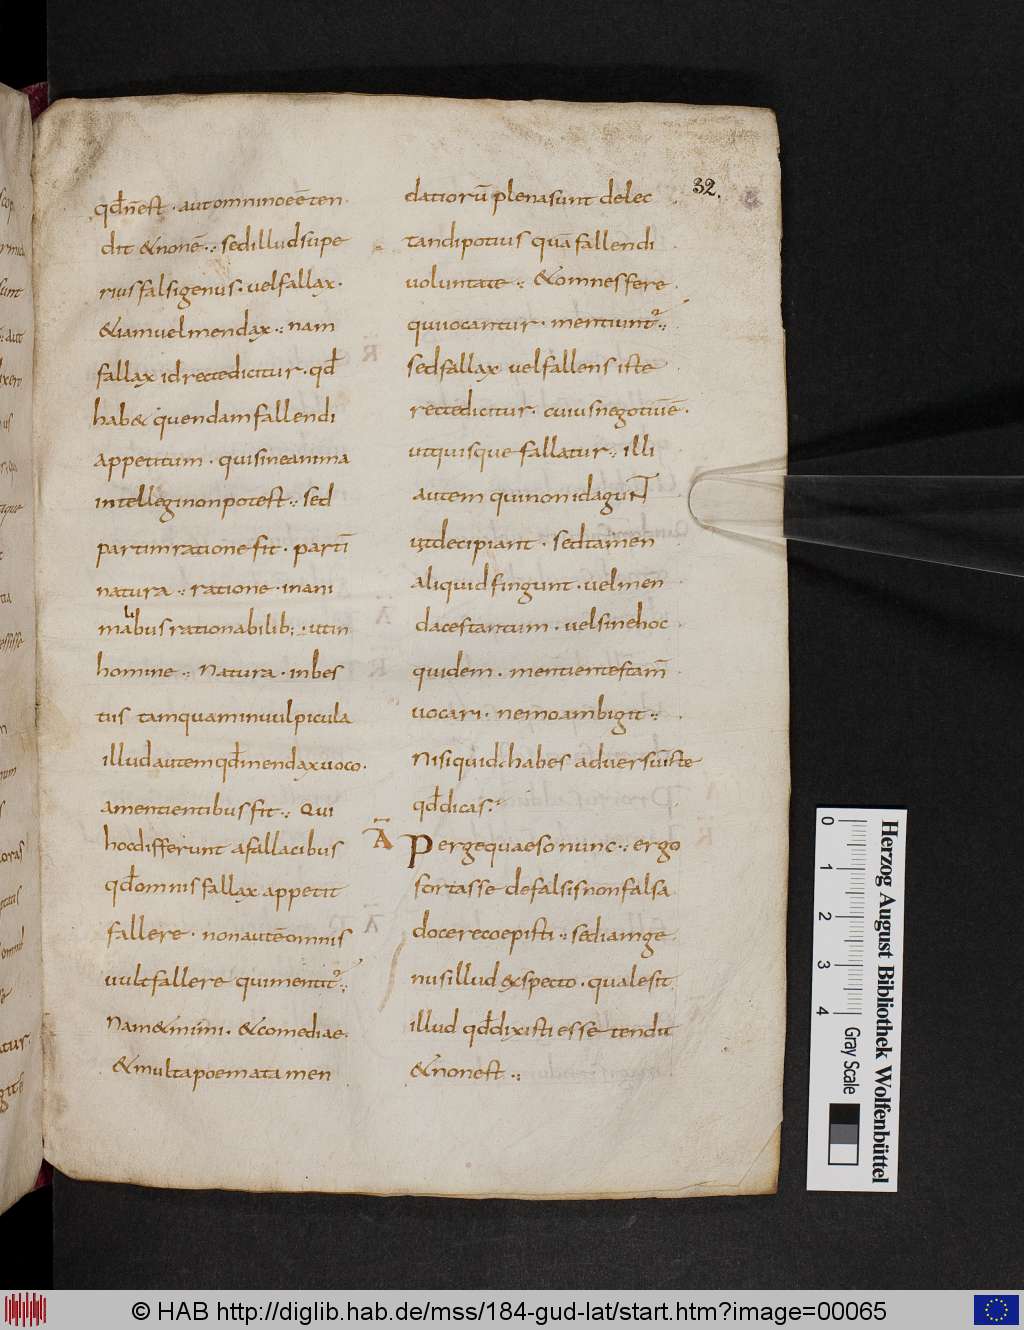 qđ n̄ est · aut omnino eē ten
dit & non ē ·: sed illud supe
rius falsi genus · vel fallax ·
& iam uel mendax ·: nam
fallax id recte dicitur · qđ
hab& quendam fallendi
appetitum · qui sine anima
intellegi non potest ·: sed
partim ratione fit · partī
natura ·: ratione · in ani
malibus rationabilib; · ut in
homine ·: Natura · in bes
tiis tamquam in vulpicula
illud autem qđ mendax uoco ·
a mentientibus fit ·: Qui
hoc differunt a fallacibus
qđ omnis fallax appetit
fallere · non autē omnis
uult fallere qui mentit² ·:
Nam & mimi · & comediae ·
& multa poemata men
datiorū plena sunt delec
tandi potius quā fallendi
voluntate ·: & omnes fere
qui iocantur · mentiunt² ·:
sed fallax vel fallens iste
recte dicitur · cuius negotiū ē ·
ut quisque fallatur ·: illi
autem qui non id agunt
ut decipiant · sed tamen
aliquid fingunt · vel men
daces tantum · vel si ne hoc
quidem · mentientes tam̄
uocari · nemo ambigit ·:
Nisi quid habes adversū iste
qđ dicas ·:
Ā Perge quaeso nunc ·: ergo
fortasse de falsis non falsa
docere coepisti ·: sed iam ge
nus illud exspecto · quale sit
illud qđ dixisti esse tendit
& non est ·:
32.
0 1 2 3 4
Gray Scale
Herzog August Bibliothek Wolfenbüttel
© HAB http://diglib.hab.de/mss/184-gud-lat/start.htm?image=00065